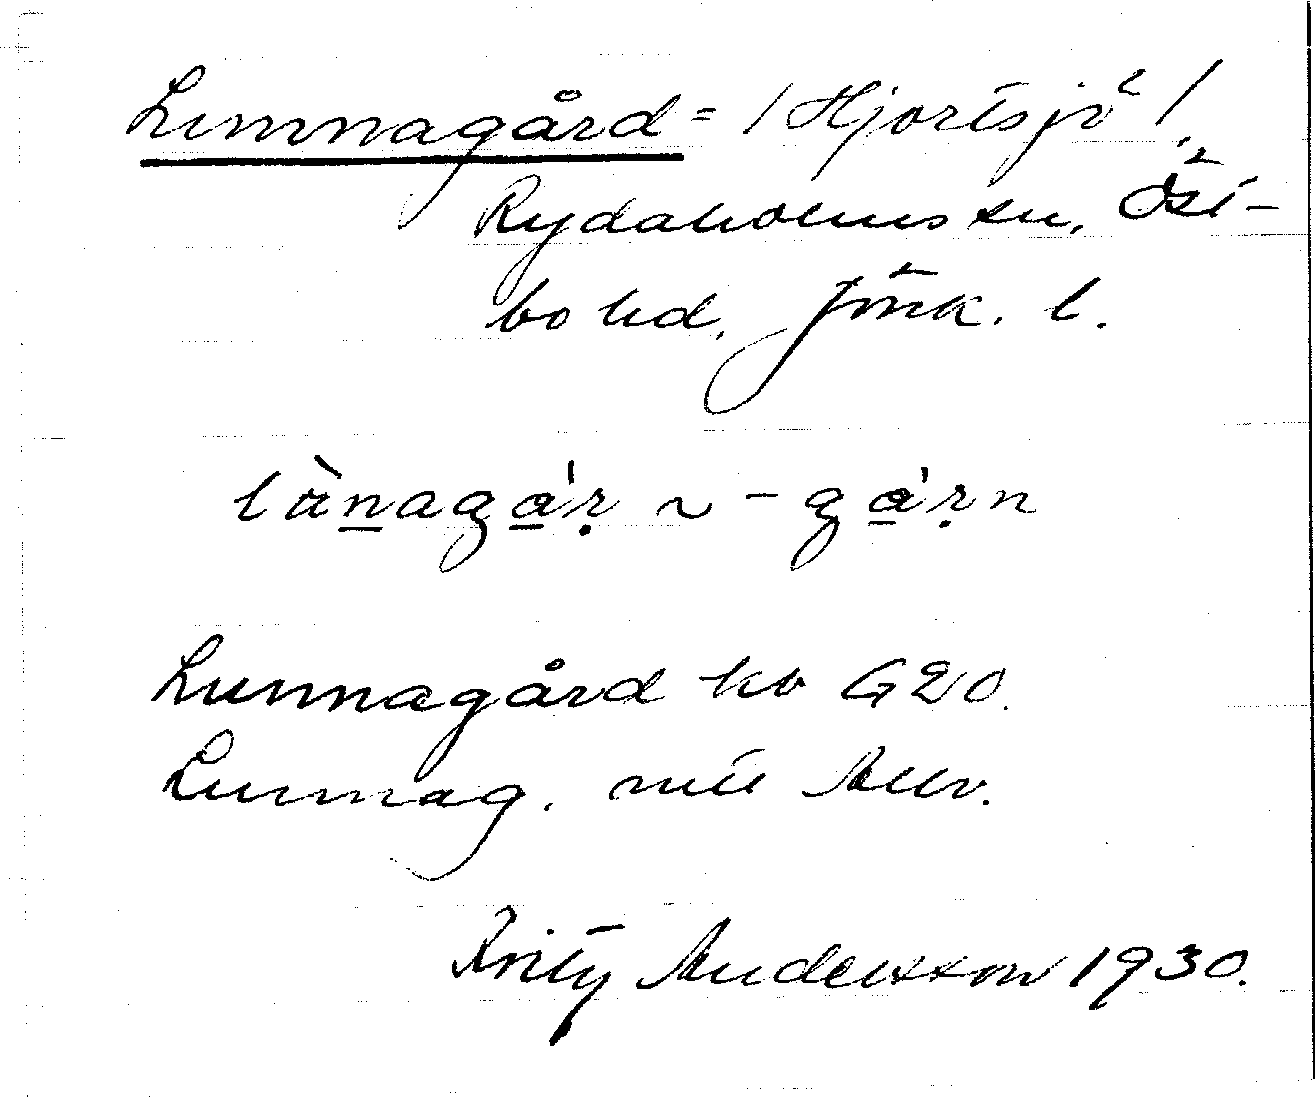 Lunnagård = / Hjortsjö /,
Rydaholms sn, Öst-
bo hd, Jönk. l.
lànagá'r ~ -gá'rn
Lunnagård kb G20.
Lunnag. mtl Allv.
Fritz Andersson 1930.